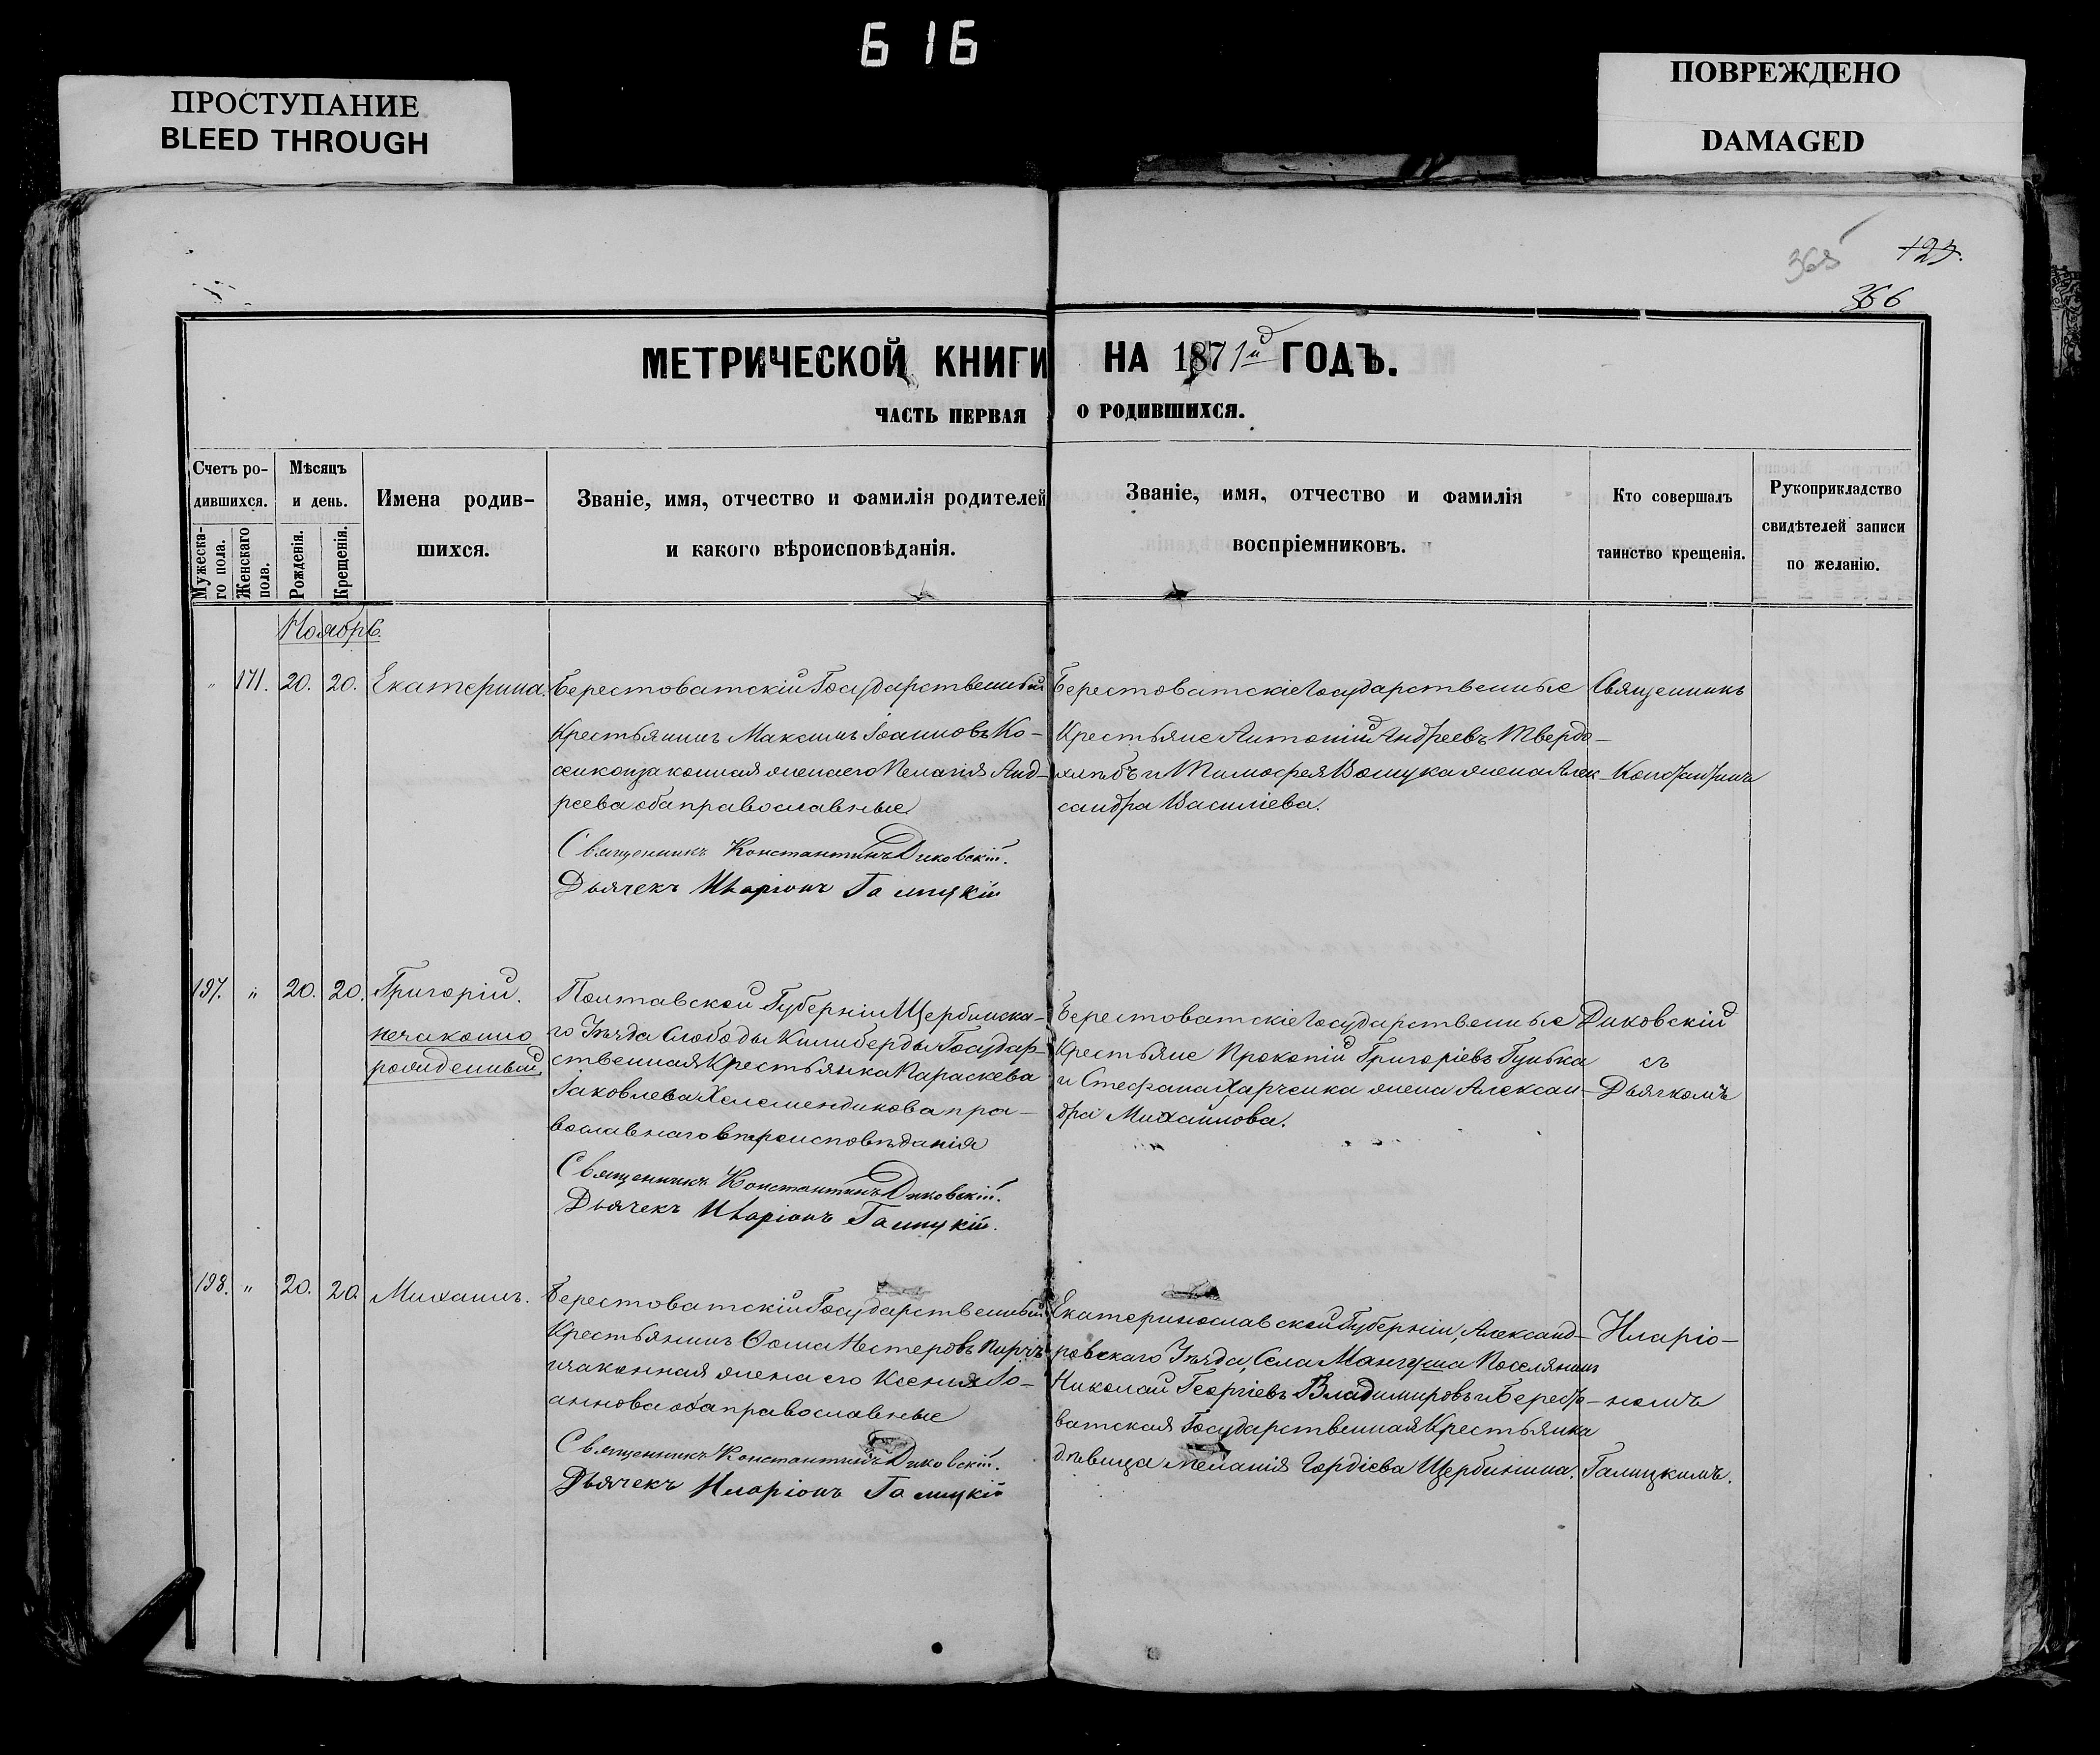 616
ПРОСТУПАНИЕ
BLEED THROUGH
ПОВРЕЖДЕНО
DAMAGED
365
127.
366
МЕТРИЧЕСКОЙ КНИГИ НА 1871й ГОДЪ.
ЧАСТЬ ПЕРВАЯ О РОДИВШИХСЯ.
Счетъ ро-
дившихся.
Мужеска-
го пола.
Женскаго
пола.
Мѣсяцъ
и день.
Рожденія.
Крещенія.
Имена родив-
шихся.
Званіе, имя, отчество и фамилія родителей
и какого вѣроисповѣданія.
Званіе, имя, отчество и фамилія
воспріемниковъ.
Кто совершалъ
таинство крещенія.
Рукоприкладство
свидѣтелей записи
по желанію.
Ноябрь.
" 171. 20. 20. Екатерина.
Берестоватскій Государственный
Крестьянинъ Максимъ Іоанновъ Ко-
законная жена его Пелагія Анд-
реева оба православные
Священникъ Константинъ Диковскій.
Дьячекъ Иларіонъ Галицкій
Берестоватскіе Государственные
Крестьяне Антоній Андреевъ Твердо-
хлѣбъ и Тимофея жена Алек-
сандра Василіева.
Священникъ
Константинъ
197. " 20. 20. Григорій.
незаконно
рожденный.
Полтавской Губерніи
го Уѣзда Слободы Государ-
ственная Крестьянка Параскева
Іаковлева пра-
вославнаго вѣроисповѣданія
Священникъ Константинъ Диковскій.
Дьячекъ Иларіонъ Галицкій.
Берестоватскіе Государственные
Крестьяне Прокопій Григоріевъ
и Стефана Харченка жена Алексан-
дра Михаилова.
Диковскій
съ
Дьячкомъ
198. " 20. 20. Михаилъ.
Берестоватскій Государственный
Крестьянинъ Ѳома Нестеровъ
и законная жена его Ксенія Іо-
аннова оба православные
Священникъ Константинъ Диковскій.
Дьячекъ Иларіонъ Галицкій
Екатеринославской Губерніи, Александ-
ровскаго Уѣзда, Села Мангуша Поселянинъ
Николай Георгіевъ Владимировъ и Бересто-
ватская Государственная Крестьянка
дѣвица Меланія Гордіева Щербинина.
Иларіо-
номъ
Галицкимъ.